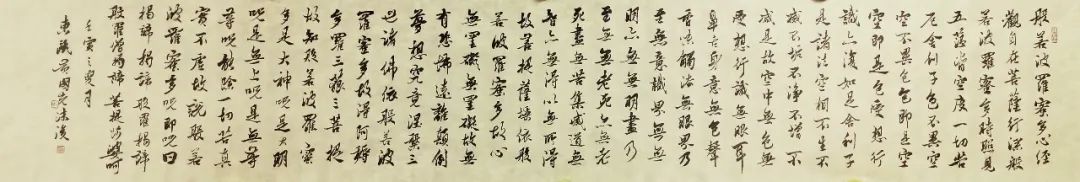 般若波羅蜜多心经
觀自在菩薩行深般
若波羅蜜多時照見
五蕴皆空度一切苦
厄舍利子色不異空
空不異色色即是空
空即是色受想行
識亦復如是舍利子
是諸法空相不生不
滅不垢不淨不增不
減是故空中無色無
受想行識無眼耳
鼻舌身意無色聲
香味觸法無眼界乃
至無意識界無無
明亦無無明盡乃
至無老死亦無老
死盡無苦集滅道無
智亦無得以無所得
故菩提薩埵依般
若波羅蜜多故心
無罣礙無罣礙故無
有恐怖遠離顛倒
夢想究竟涅槃三
世諸佛依般若波
羅蜜多故得阿耨
多羅三藐三菩提
故知般若波羅蜜
多是大神咒是大明
咒是無上咒是無等
等咒能除一切苦真
實不虛故說般若
波羅蜜多咒即說咒曰
揭諦揭諦般羅揭諦
般羅僧揭諦菩提莎婆呵
壬寅之月
國